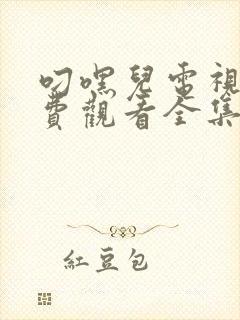 叼嘿兒電視
費觀看全集
紅豆包